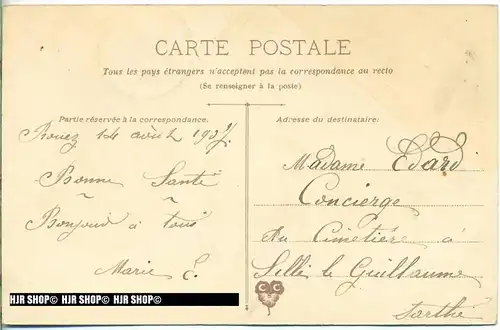 CARTE POSTALE
Tous les pays étrangers n'acceptent pas la correspondance au recto
(Se renseigner à la poste)
Partie réservée à la correspondance.
Rouez 14 août 1907.
Bonne Santé
~ ~
Bonjour à tous
Marie E.
Adresse du destinataire:
Madame Edard
Concierge
Au Cimetière à
Sillé le Guillaume
Sarthe
C C
HJR SHOP© HJR SHOP© HJR SHOP©